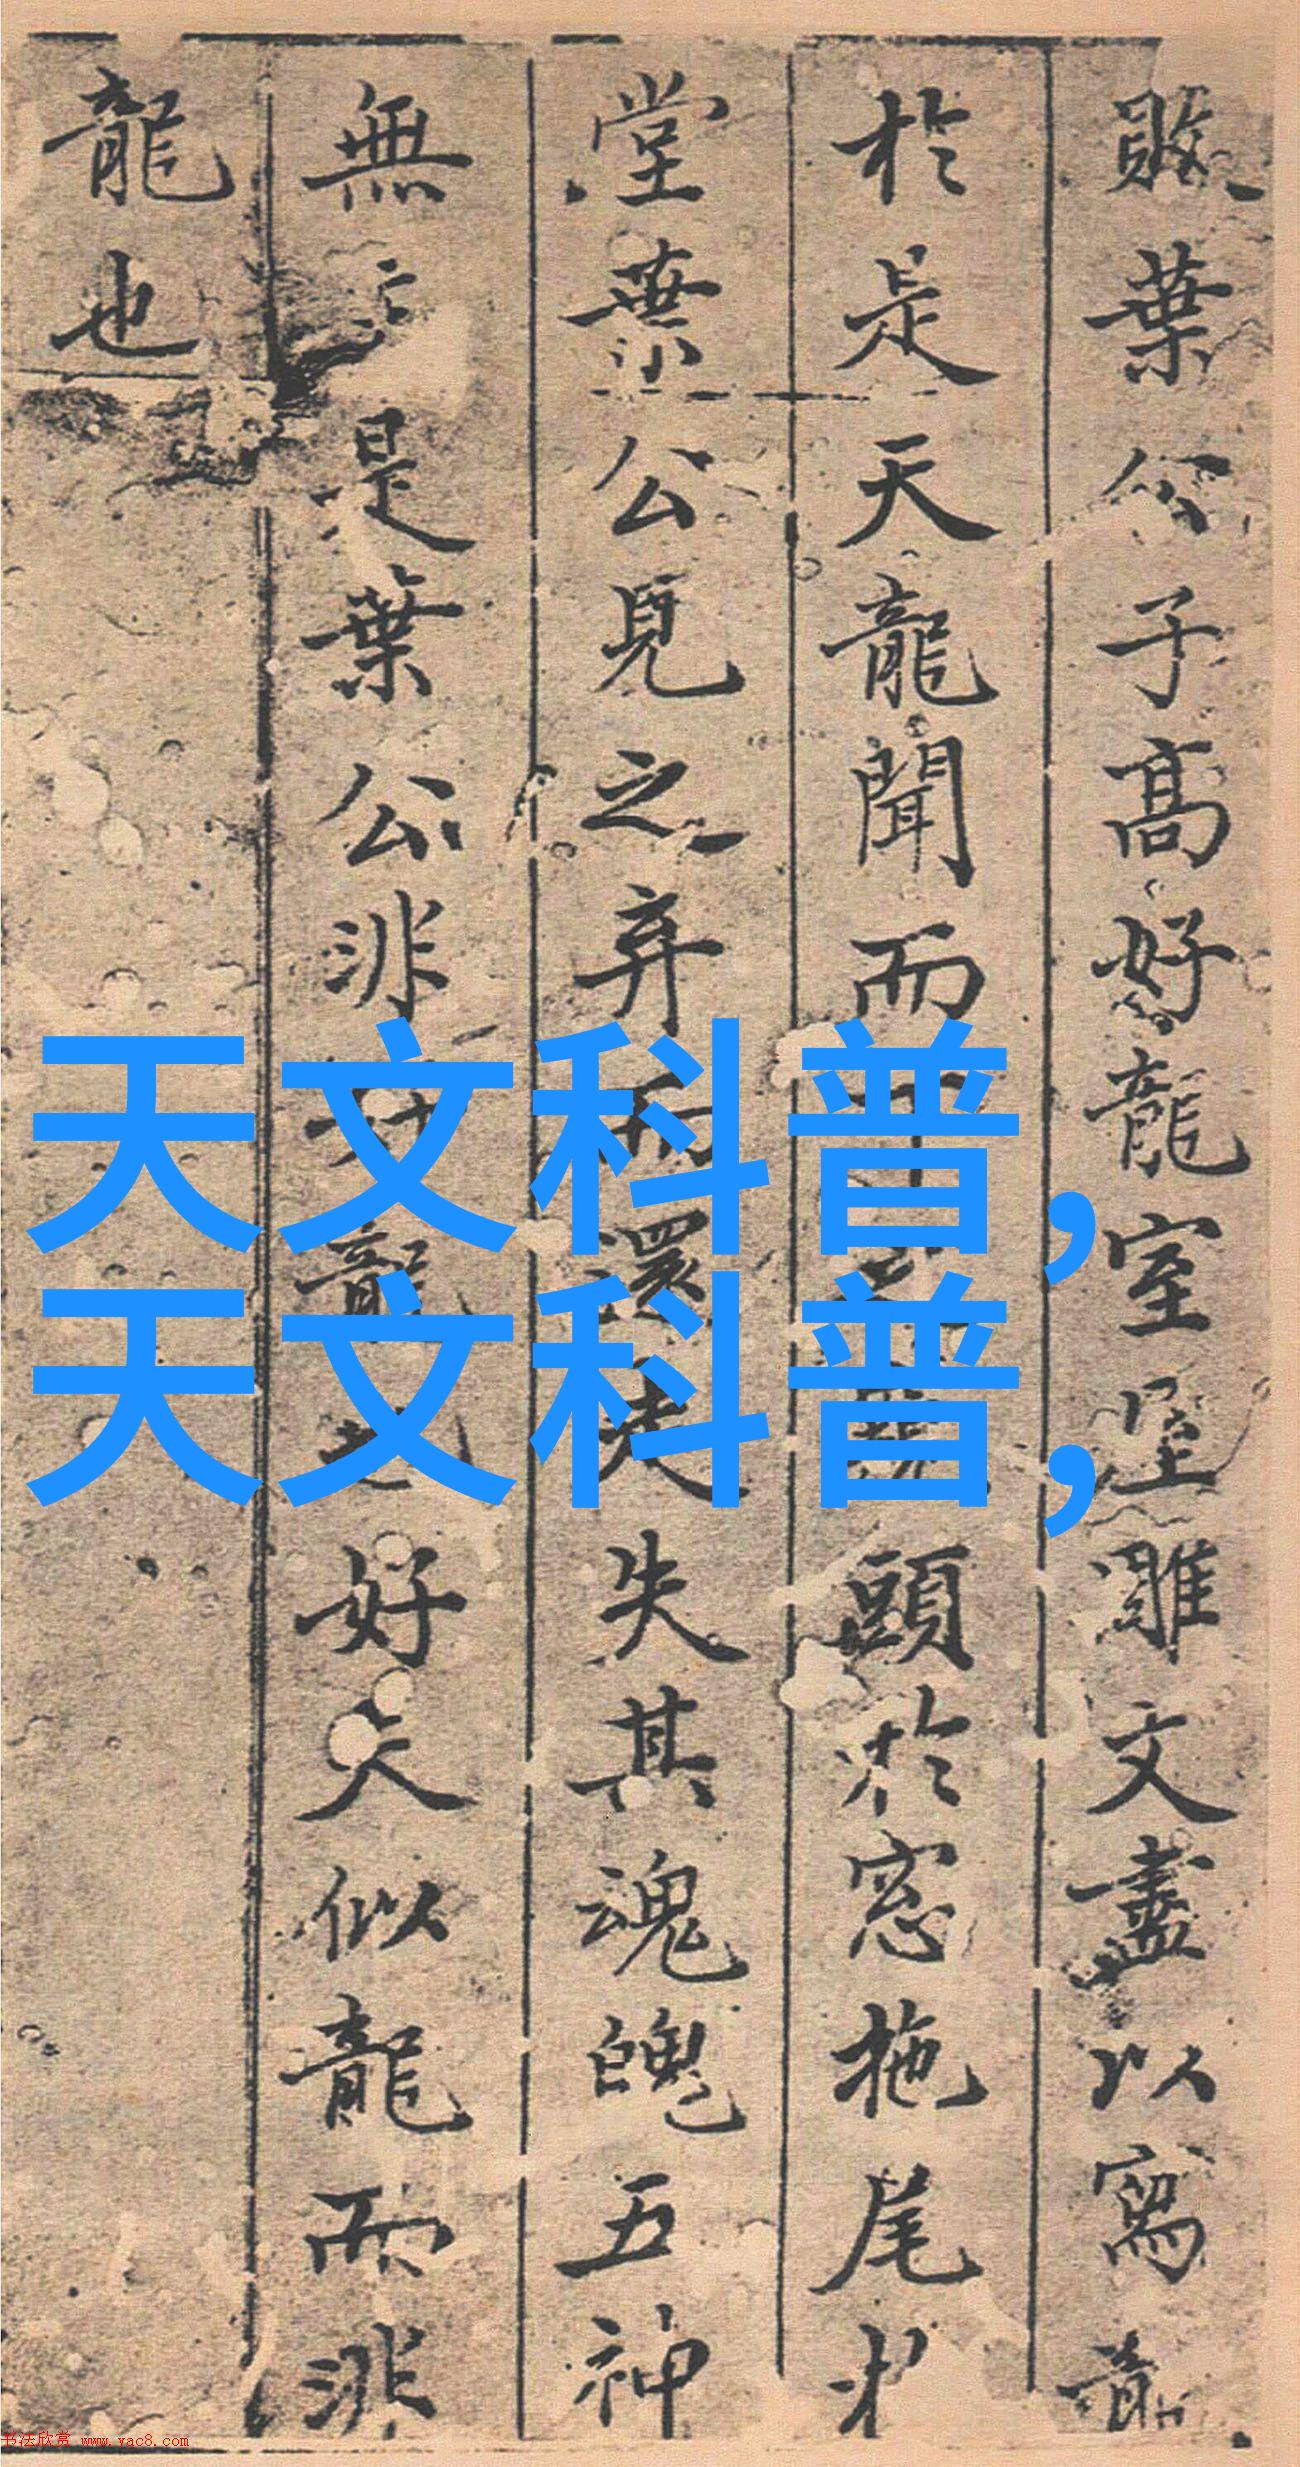 敗葉公子高好龍室屋雕文盡以寫龍
於是天龍聞而下之頭於窓拖尾
堂葉公見之弃而還走失其魂魄五神
無主是葉公非好龍也好夫似龍而非
龍也
天文科普,
天文科普,
书法欣赏 www.yac8.com